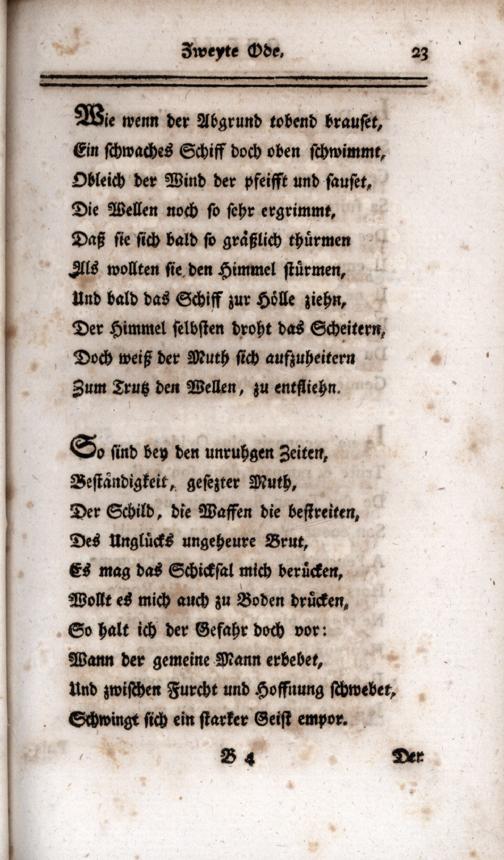 Zweyte Ode. 23
Wie wenn der Abgrund tobend brauset,
Ein schwaches Schiff doch oben schwimmt,
Obleich der Wind der pfeifft und sauset,
Die Wellen noch so sehr ergrimmt,
Daß sie sich bald so gräßlich thürmen
Als wollten sie den Himmel stürmen,
Und bald das Schiff zur Hölle ziehn,
Der Himmel selbsten droht das Scheitern,
Doch weiß der Muth sich aufzuheitern
Zum Trutz den Wellen, zu entfliehn.
So sind bey den unruhgen Zeiten,
Beständigkeit, gesezter Muth,
Der Schild, die Waffen die bestreiten,
Des Unglücks ungeheure Brut,
Es mag das Schicksal mich berücken,
Wollt es mich auch zu Boden drücken,
So halt ich der Gefahr doch vor:
Wann der gemeine Mann erbebet,
Und zwischen Furcht und Hoffnung schwebet,
Schwingt sich ein starker Geist empor.
B 4 Der